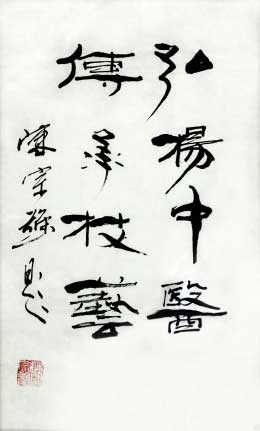 弘揚中醫
傳承技藝
陳宗強題